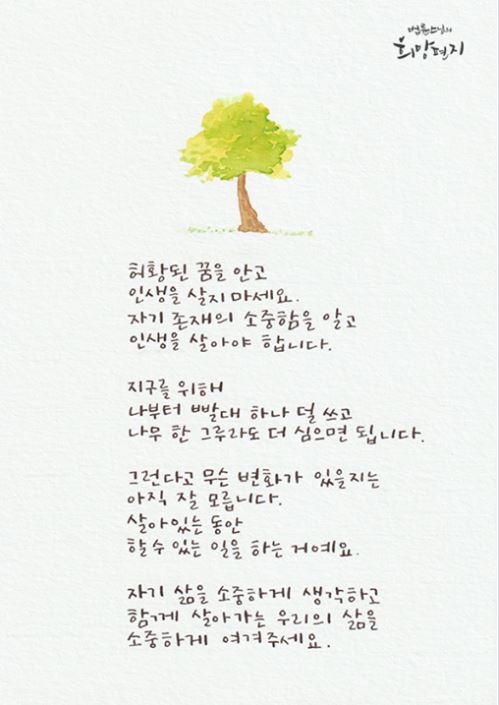 법륜스님의
희망편지
허황된 꿈을 안고
인생을 살지 마세요.
자기 존재의 소중함을 알고
인생을 살아야 합니다.
지구를 위해
나부터 빨대 하나 덜 쓰고
나무 한 그루라도 더 심으면 됩니다.
그런다고 무슨 변화가 있을지는
아직 잘 모릅니다.
살아있는 동안
할 수 있는 일을 하는 거예요.
자기 삶을 소중하게 생각하고
함께 살아가는 우리의 삶을
소중하게 여겨주세요.